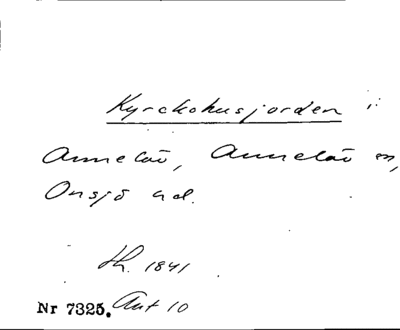 Kyrckohusjorden i:
Annelöv, Annelöv sn,
Onsjö hd.
Lh. 1841
Nr 7325. Akt 10